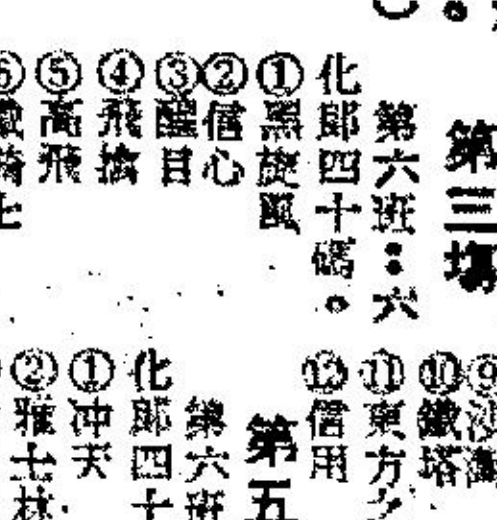 第三塲
第六班：六
化郎四十碼。
①黑旋風
②信心
③醒目
④飛擒
⑤高飛
⑩鐵塔
⑪東方之
⑫信用
第五
第六班
化郎四十
①冲天
②雅士林